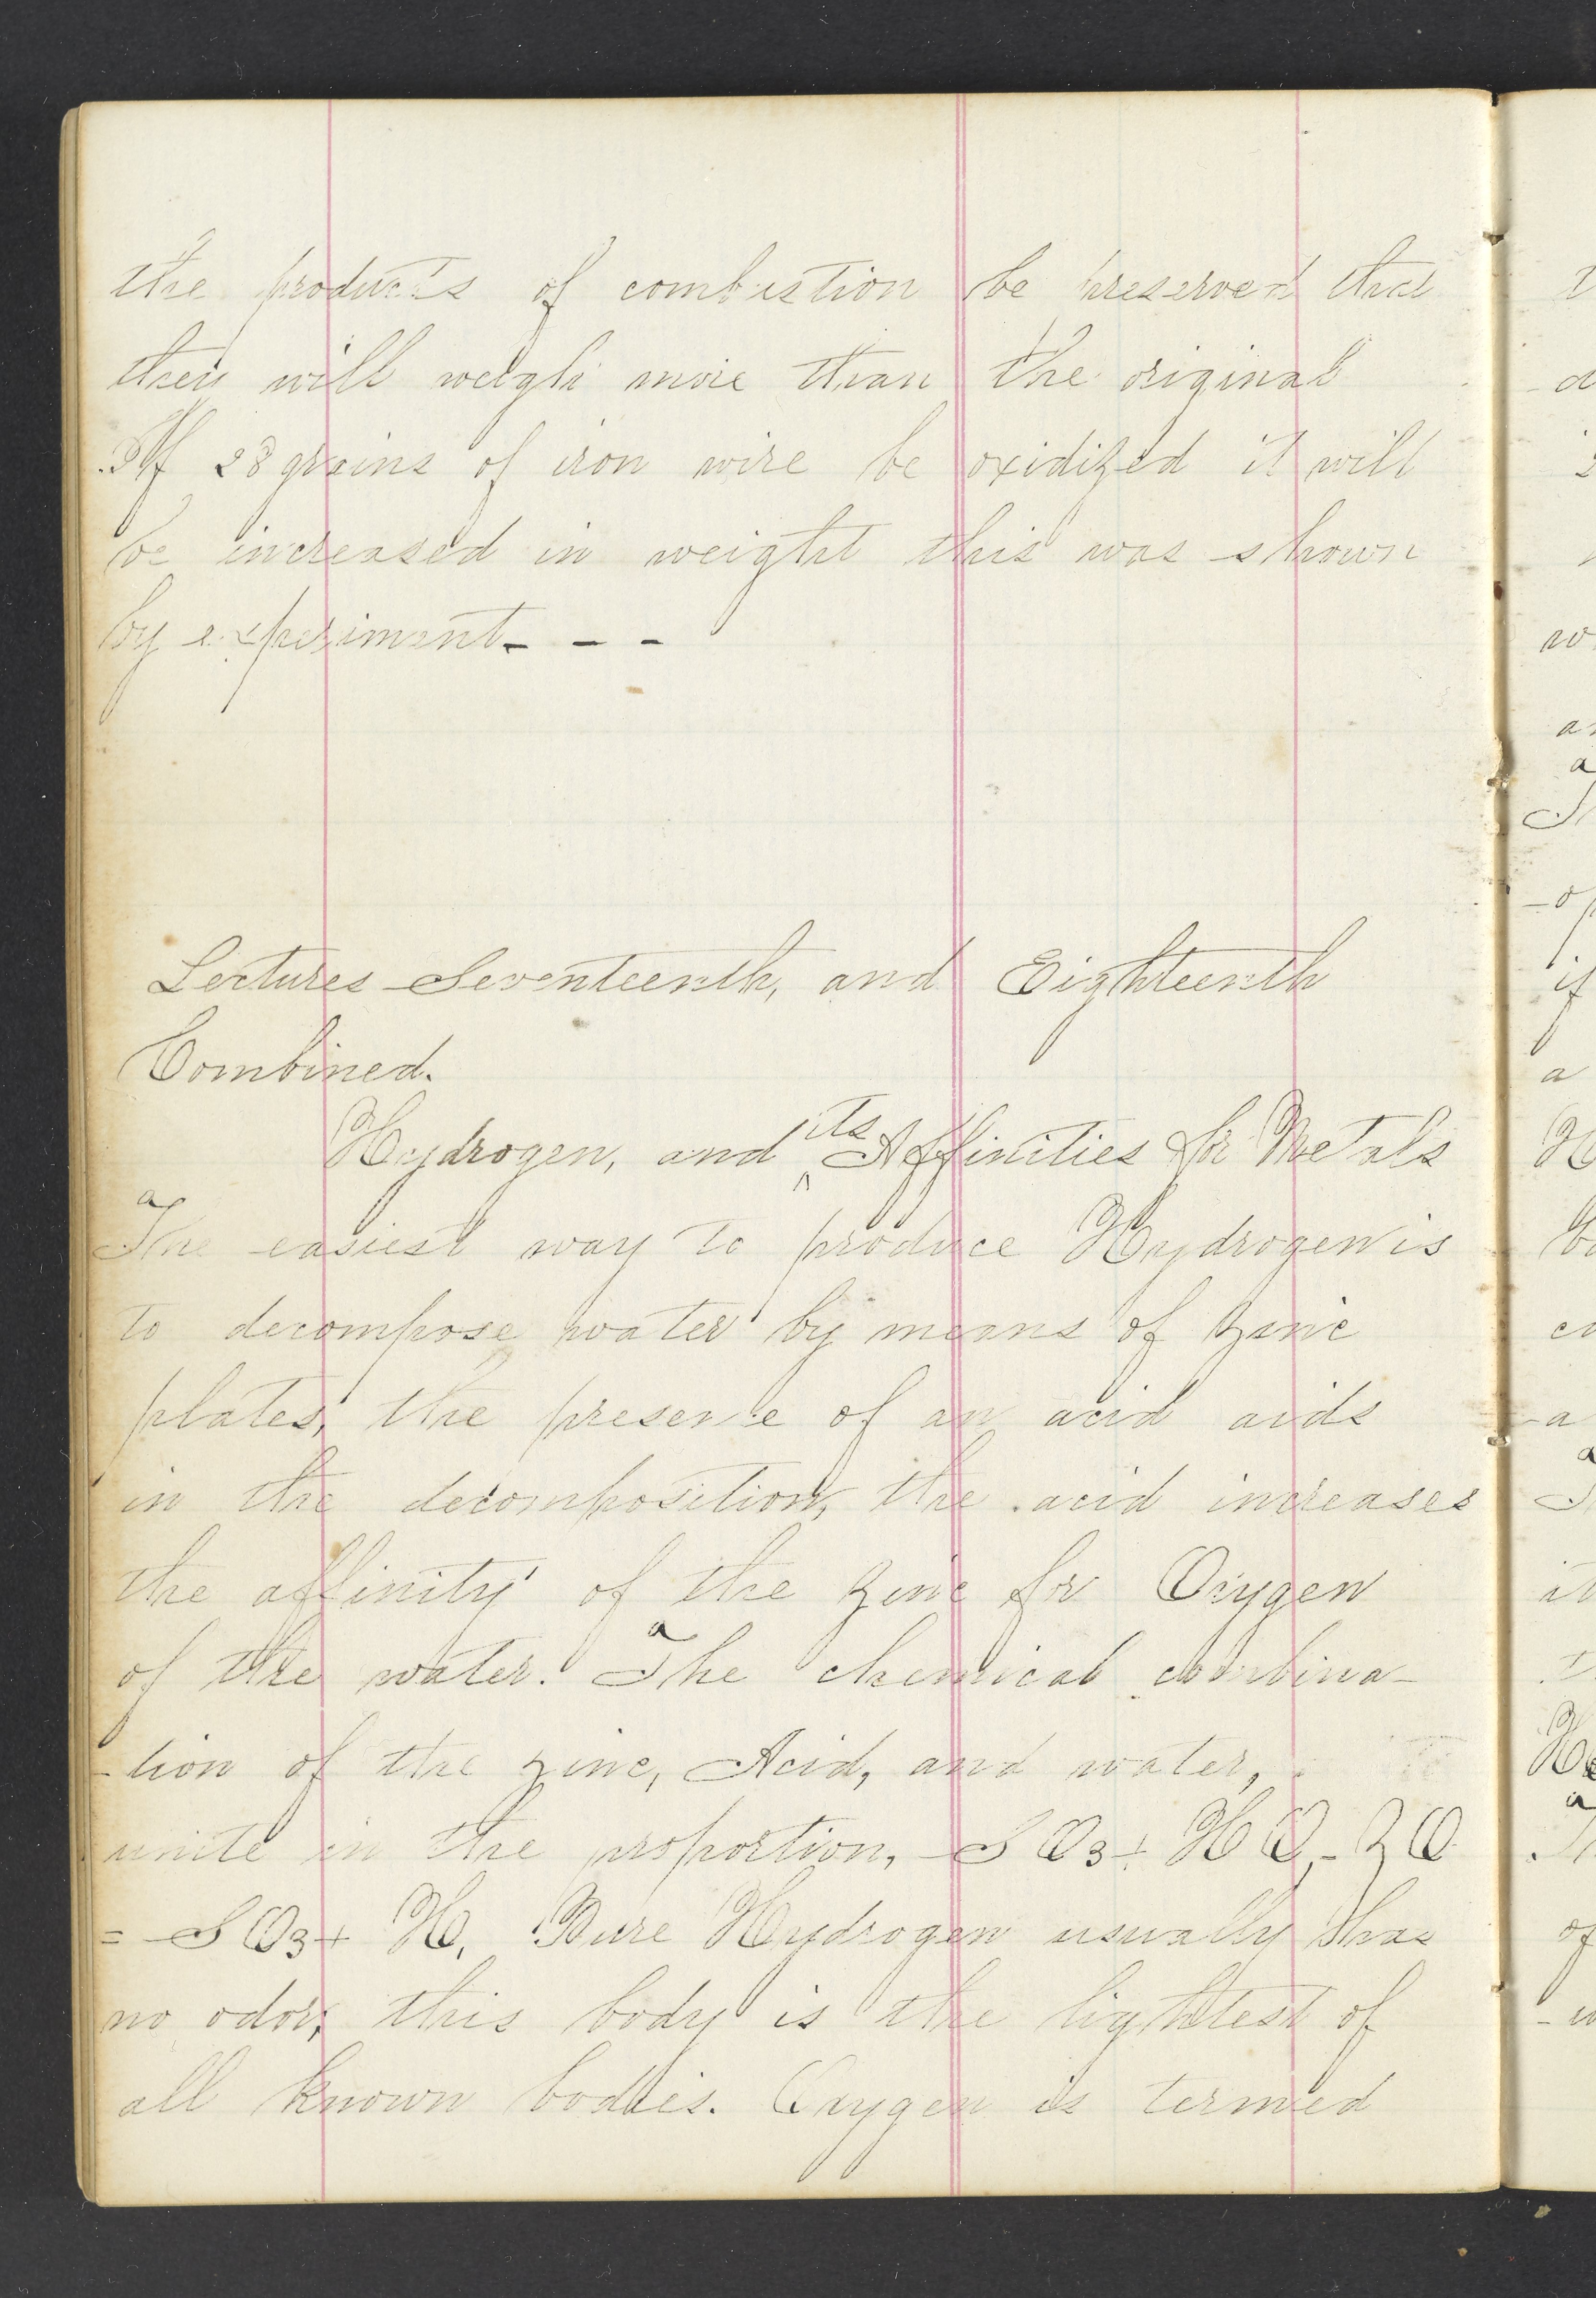 the products of combustion be preserved that
they will weigh more than the original
If 28 grains of iron wire be oxidized it will
be increased in weight this was shown
by experiment. - -
Lectures Seventeenth, and Eighteenth
Combined.
its
Hydrogen, and ^ Affinities for Metals
a
The easiest way to produce Hydrogen is
to decompose water by means of zinc
plates, the presence of an acid aids
in the decomposition, the acid increases
the affinity of the zinc for Oxygen
a
of the water. The chemical combina-
-tion of the zinc, Acid, and water,
unite in the proportion, SO3+ HO, - ZO
= SO3+ H. Pure Hydrogen usually has
no odor; this body is the lightest of
all known bodies. Oxygen is termed